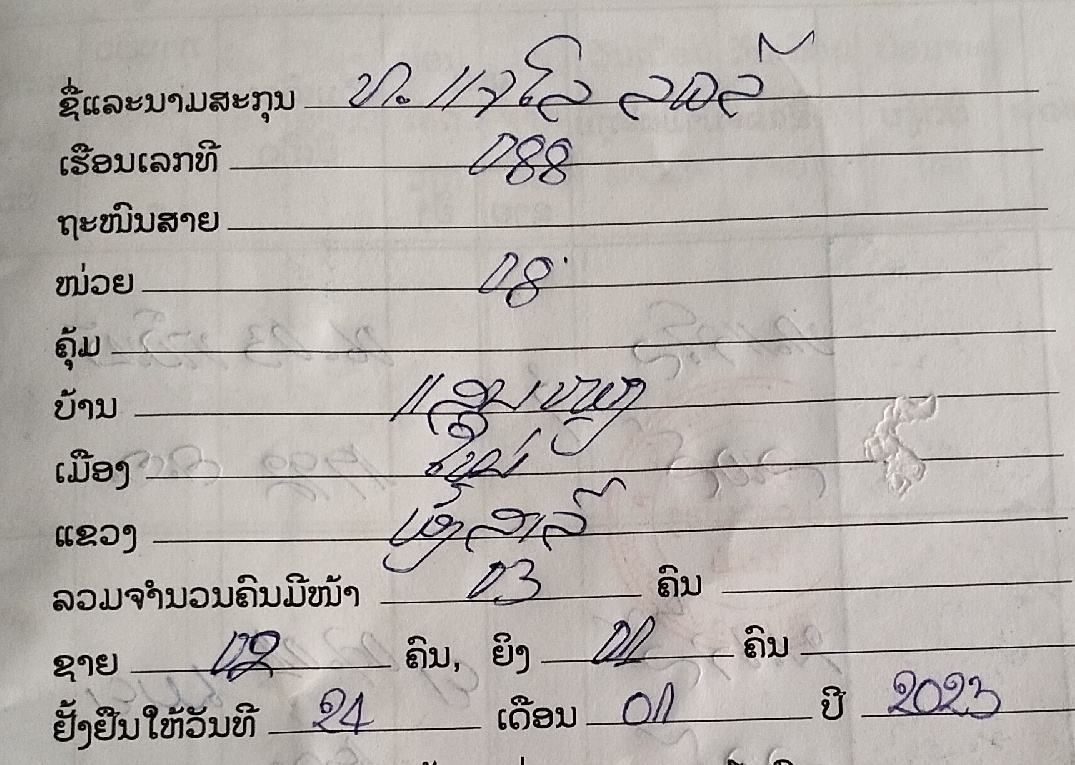 ຊື່ແລະນາມສະກຸນ ທ. ແຈໂລ ລໍວລໍ້
ເຮືອນເລກທີ 088
ຖະໜົນສາຍ
ໜ່ວຍ 08
ຄຸ້ມ
ບ້ານ ແສນ
ເມືອງ ໃໝ່
ແຂວງ ຜົ້ງສາລີ
ລວມຈຳນວນຄົນມີໜ້າ 03 ຄົນ
ຊາຍ 02 ຄົນ, ຍິງ 01 ຄົນ
ຢັ້ງຢືນໃຫ້ວັນທີ 24 ເດືອນ 01 ປີ 2023